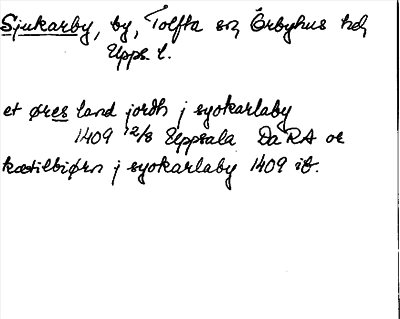 Sjukarby, by, Tolfta sn, Örbyhus hd,
Upps. l.
et øres land jordh j syokarlaby
1409 12/8 Uppsala DaRA or
kætilbiørn j syokarlaby 1409 ib.